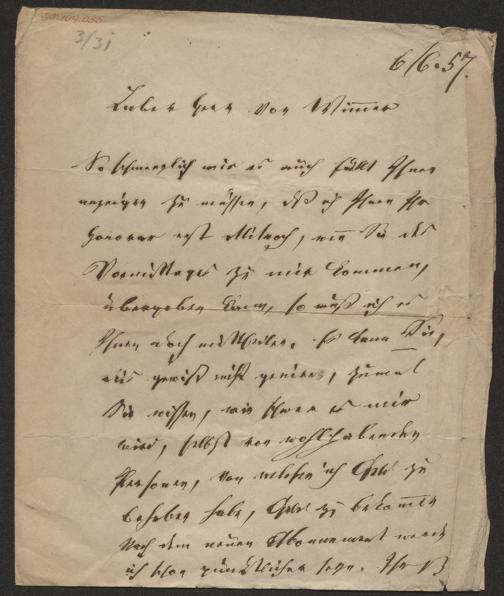 3/31
6/6.57.
Lieber Herr von Wimmer
So schmerzlich mir es auch fällt Ihnen
anzeigen zu müssen, daß ich Ihnen Ihr
Honorar erst Mittwoch, wenn Sie des
Vormittages zu mir kommen,
übergeben kann, so muß ich es
Ihnen doch mittheilen. Es kann Sie,
gewiß nicht geniren, zumal
Sie wissen, wie schwer es mir
wird, selbst von wohlhabenden
Personen, von welchen ich Geld zu
haben habe, Geld zu bekommen
Nach dem neuen Abonnement werde
ich schon pünktlicher sein. Ihr